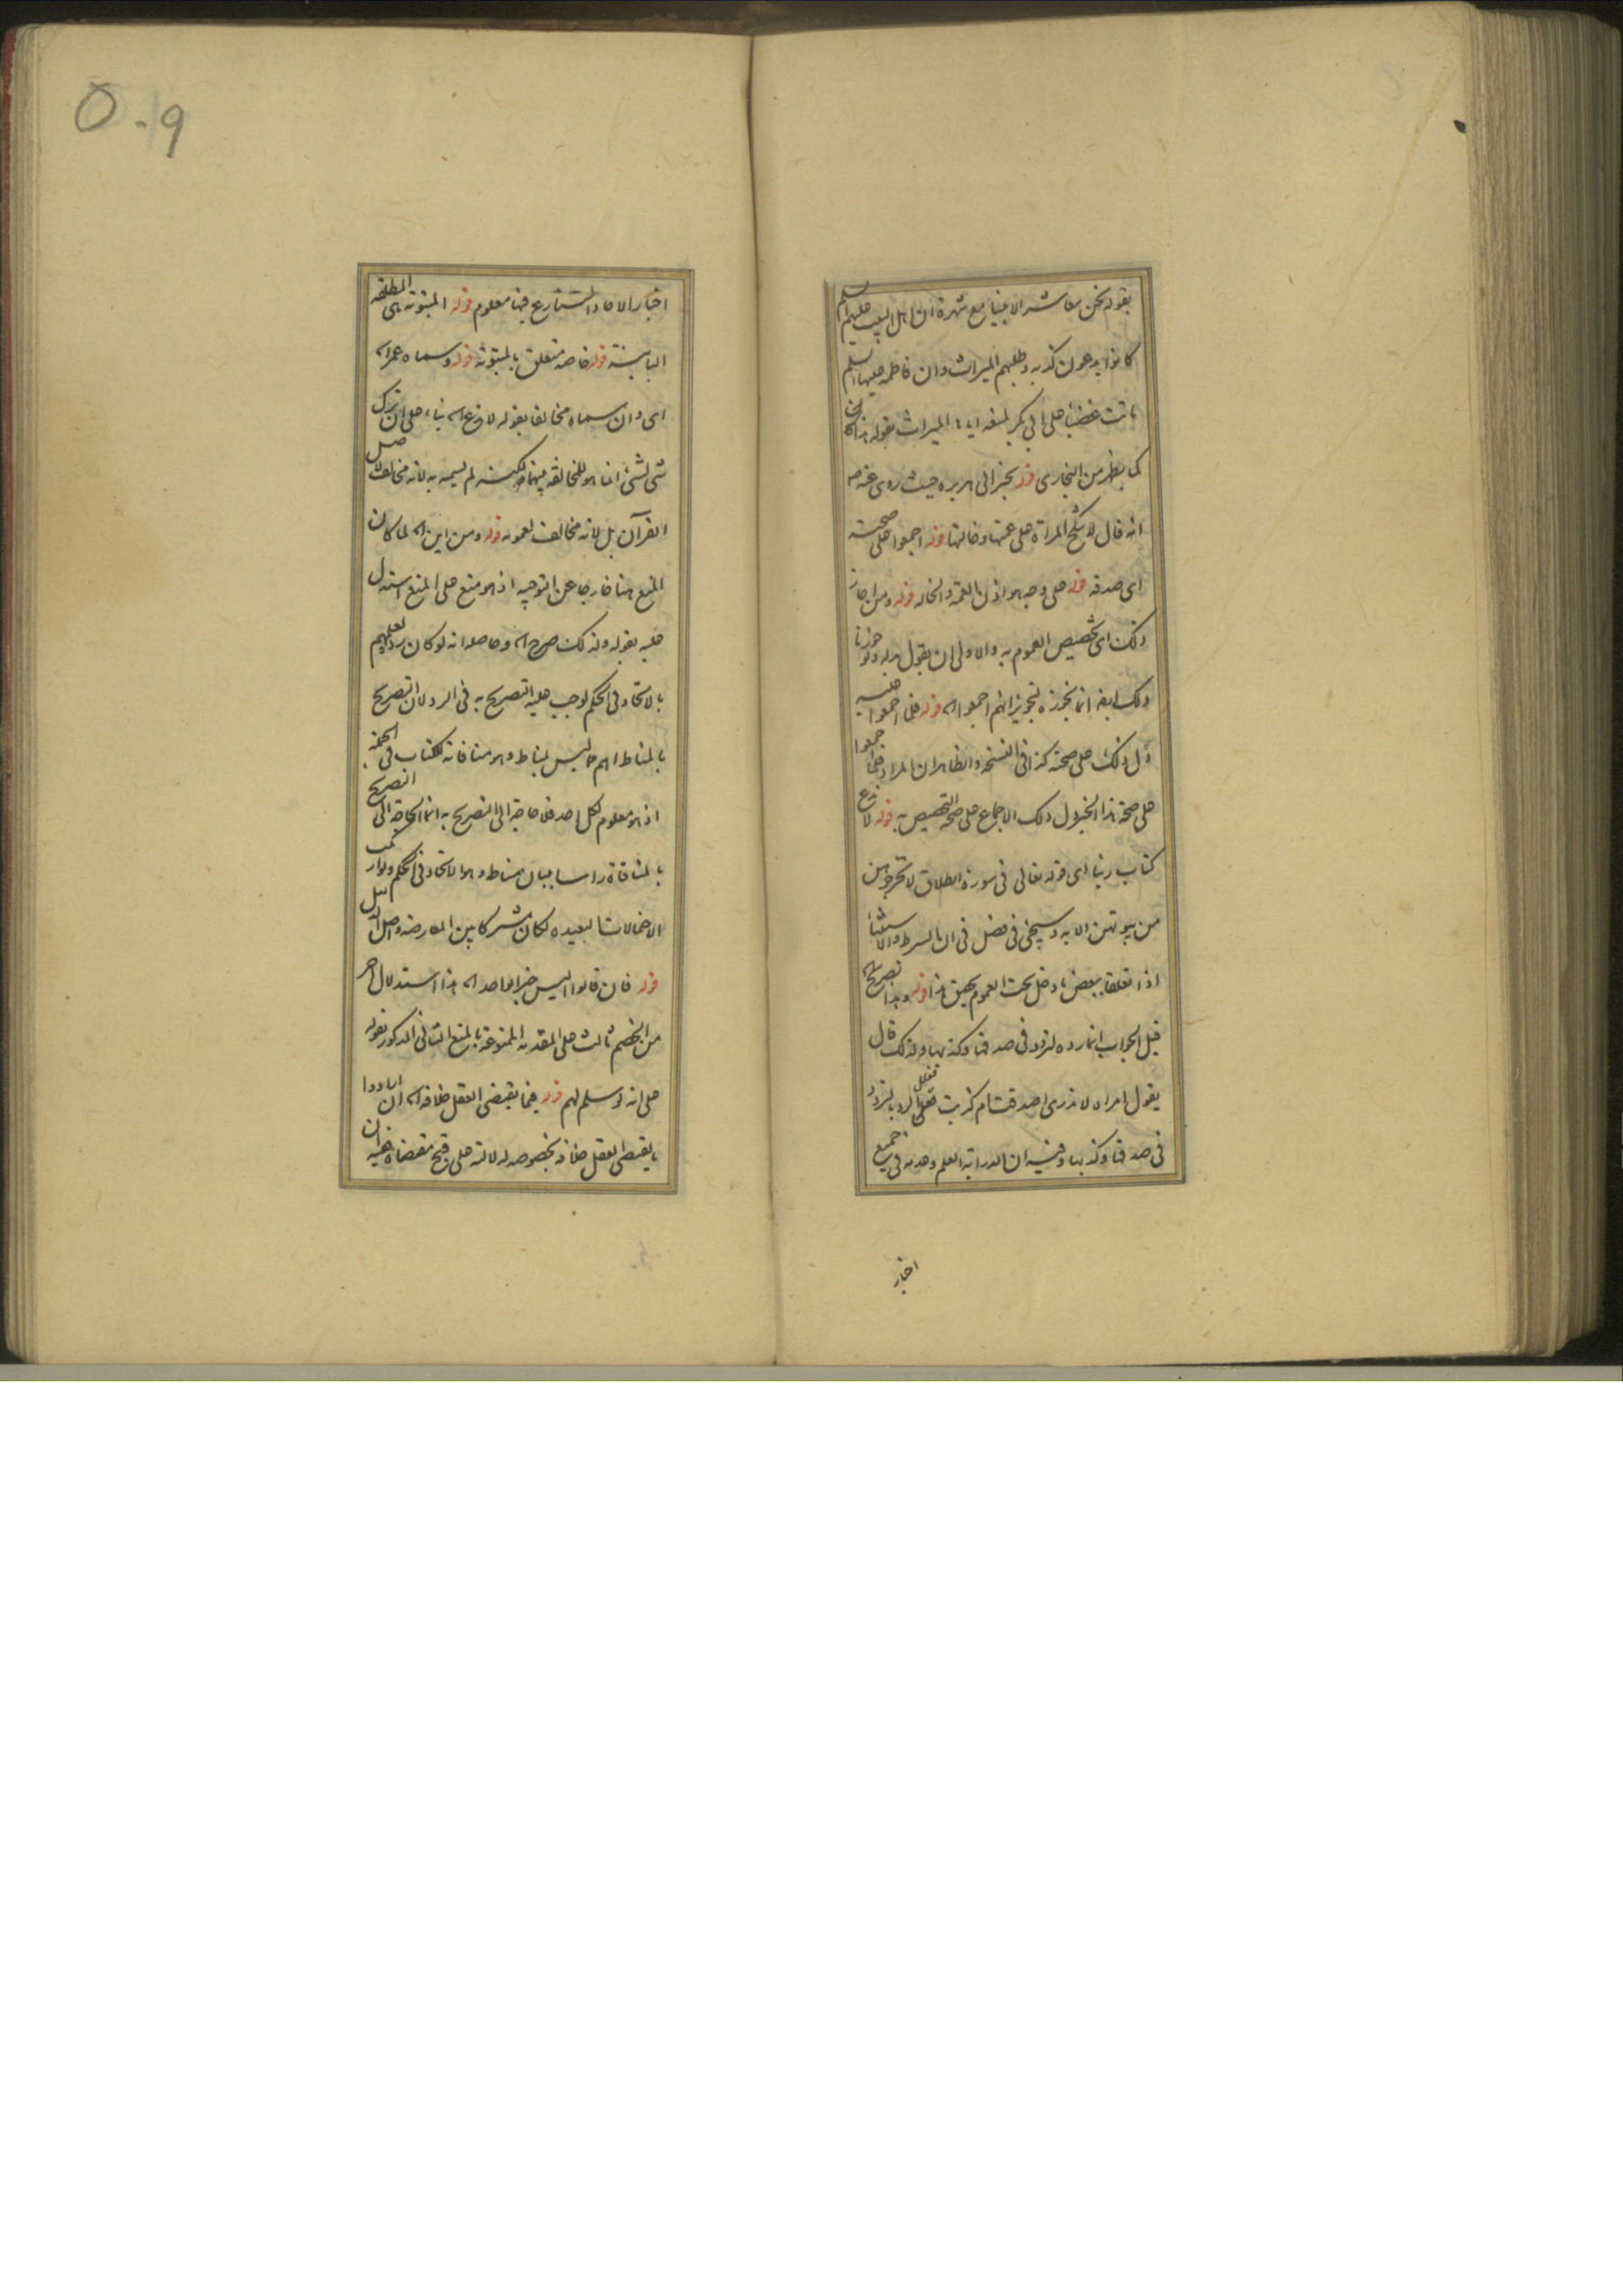 بقوله نحن معاشر الانبياء مع شهرة ان اهل البيت عليهم السلم
كانوا يدعون كذبه وطلبهم الميراث وان فاطمة عليها السلم
ماتت غضبا على ابي بكر لمنعه اياها الميراث بقوله هذا
كما يظهر من البخاري قوله بخبر ابي هريرة حيث روى عنه ص
انه قال لا تنكح المراة على عمتها وخالتها قوله اجمعوا على صحته
اى صدقه قوله على وجه هو اذن العمة والخالة قوله ومن اجاز
ذلك اى تخصيص العموم به والاولى ان يقول بدله ولو جوزنا
ذلك ايضا انما نجوزه لتجويز انهم اجمعوا اه قوله فلما اجمعوا عليه
دل ذلك على صحته كذا في النسخة والظاهر ان المراد فلما اجمعوا
على صحة هذا الخبر دل ذلك الاجماع على صحة التخصيص به قوله لا ندع
كتاب ربنا اى قوله تعالى في سورة الطلاق لا تخرجوهن
من بيوتهن الاية وسيجئ في فصل في ان الشرط والاستثناء
اذا تعلقا ببعض ما دخل تحت العموم تحقيق هذا قوله وهذا تصريح
قيل الجواب انما رده لتردد في صدقها وكذبها ولذلك قال
يقول امراة لا ندرى اصدقت ام كذبت فعلل الرد بالتردد
في صدقها وكذبها وفيه ان الدراية العلم وعدمه في جميع
اخبار
٥٠٩
اخبار الاحاد المتنازع فيها معلوم قوله المبتوتة هى المطلقة
البائنة قوله خاصة متعلق بالمبتوتة قوله وسماه عمر اه
اى وان سماه مخالفا بقوله لا ندع اه بناء على ان ترك
شئ لشئ انما هو للمخالفة بينهما ولكنه لم يسمه به لانه مخالف لاصل
القرآن بل لانه مخالف لعمومه قوله ومن اين اه لما كان
المنع هنا خارجا عن التوجيه اذ هو منع على المنع استدل
عليه بقوله ولذلك صرح اه وحاصله انه لو كان رده لعلمهم
بالاتحاد في الحكم لوجب عليه التصريح به في الرد لان التصريح
بالمناط اهم مما ليس بمناط وهو منافاته للكتاب في الجملة
اذ هو معلوم لكل احد فلا حاجة الى التصريح به انما الحاجة الى التصريح
بالمنافاة راسا ببيان مناط وهو الاتحاد في الحكم ولو ارتكب
الاحتمالات البعيدة لكان مشتركا بين المعارضة واصل الدليل
قوله فان قالوا اليس خبر الواحد اه هذا استدلال اخر
من الخصم ثالث على المقدمة الممنوعة بالمنع الثانى المذكور بقوله
على انه لو سلم لهم قوله فيما يقتضى العقل خلافه اه ان ارادوا
ما يقتضى العقل خلافه بخصوصه لدلالته على قبح مقتضاه فيه ان